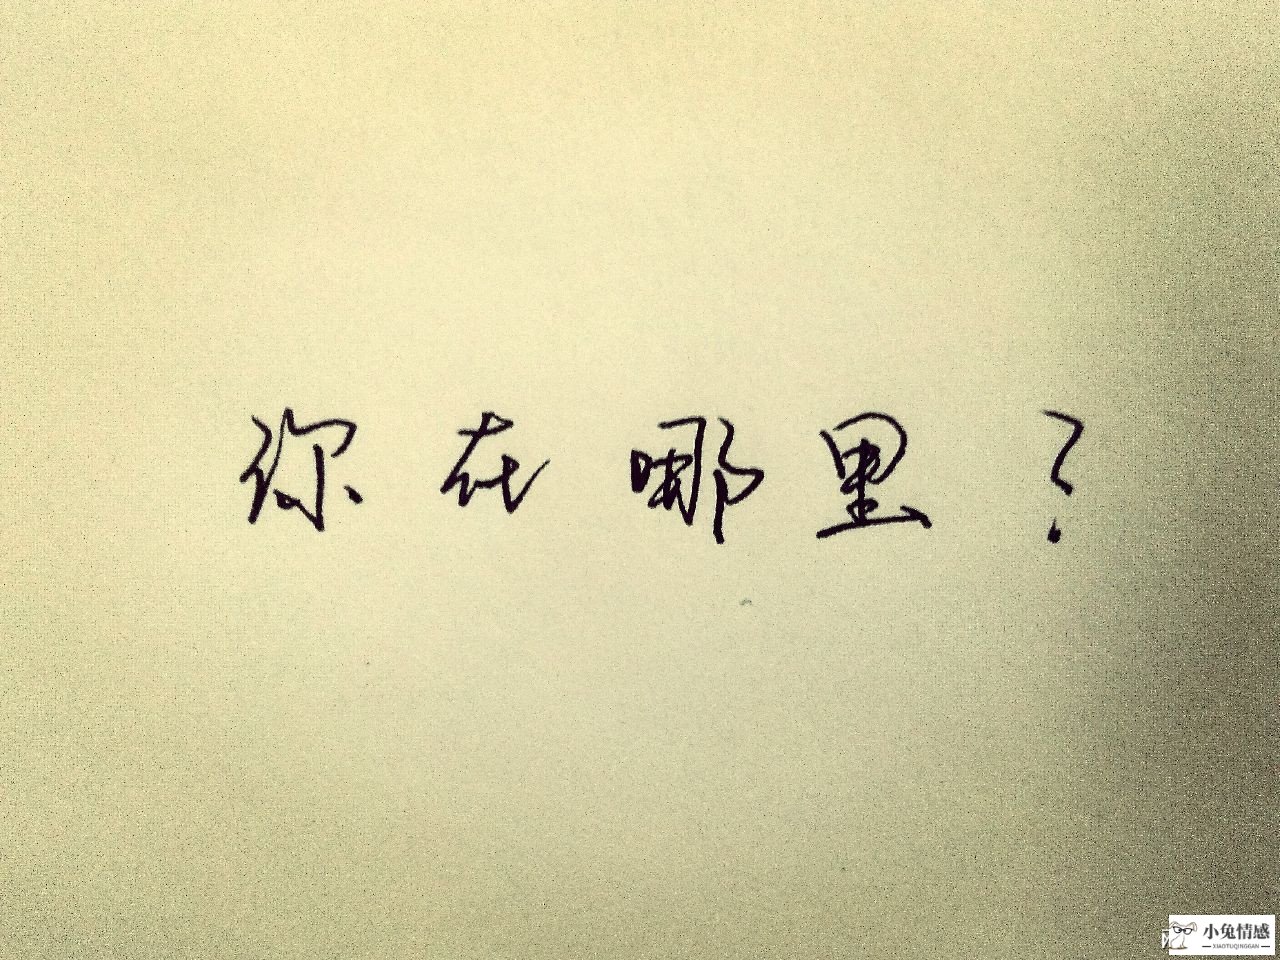 你在哪里？
小兔情感
XIAOTUQINGGAN